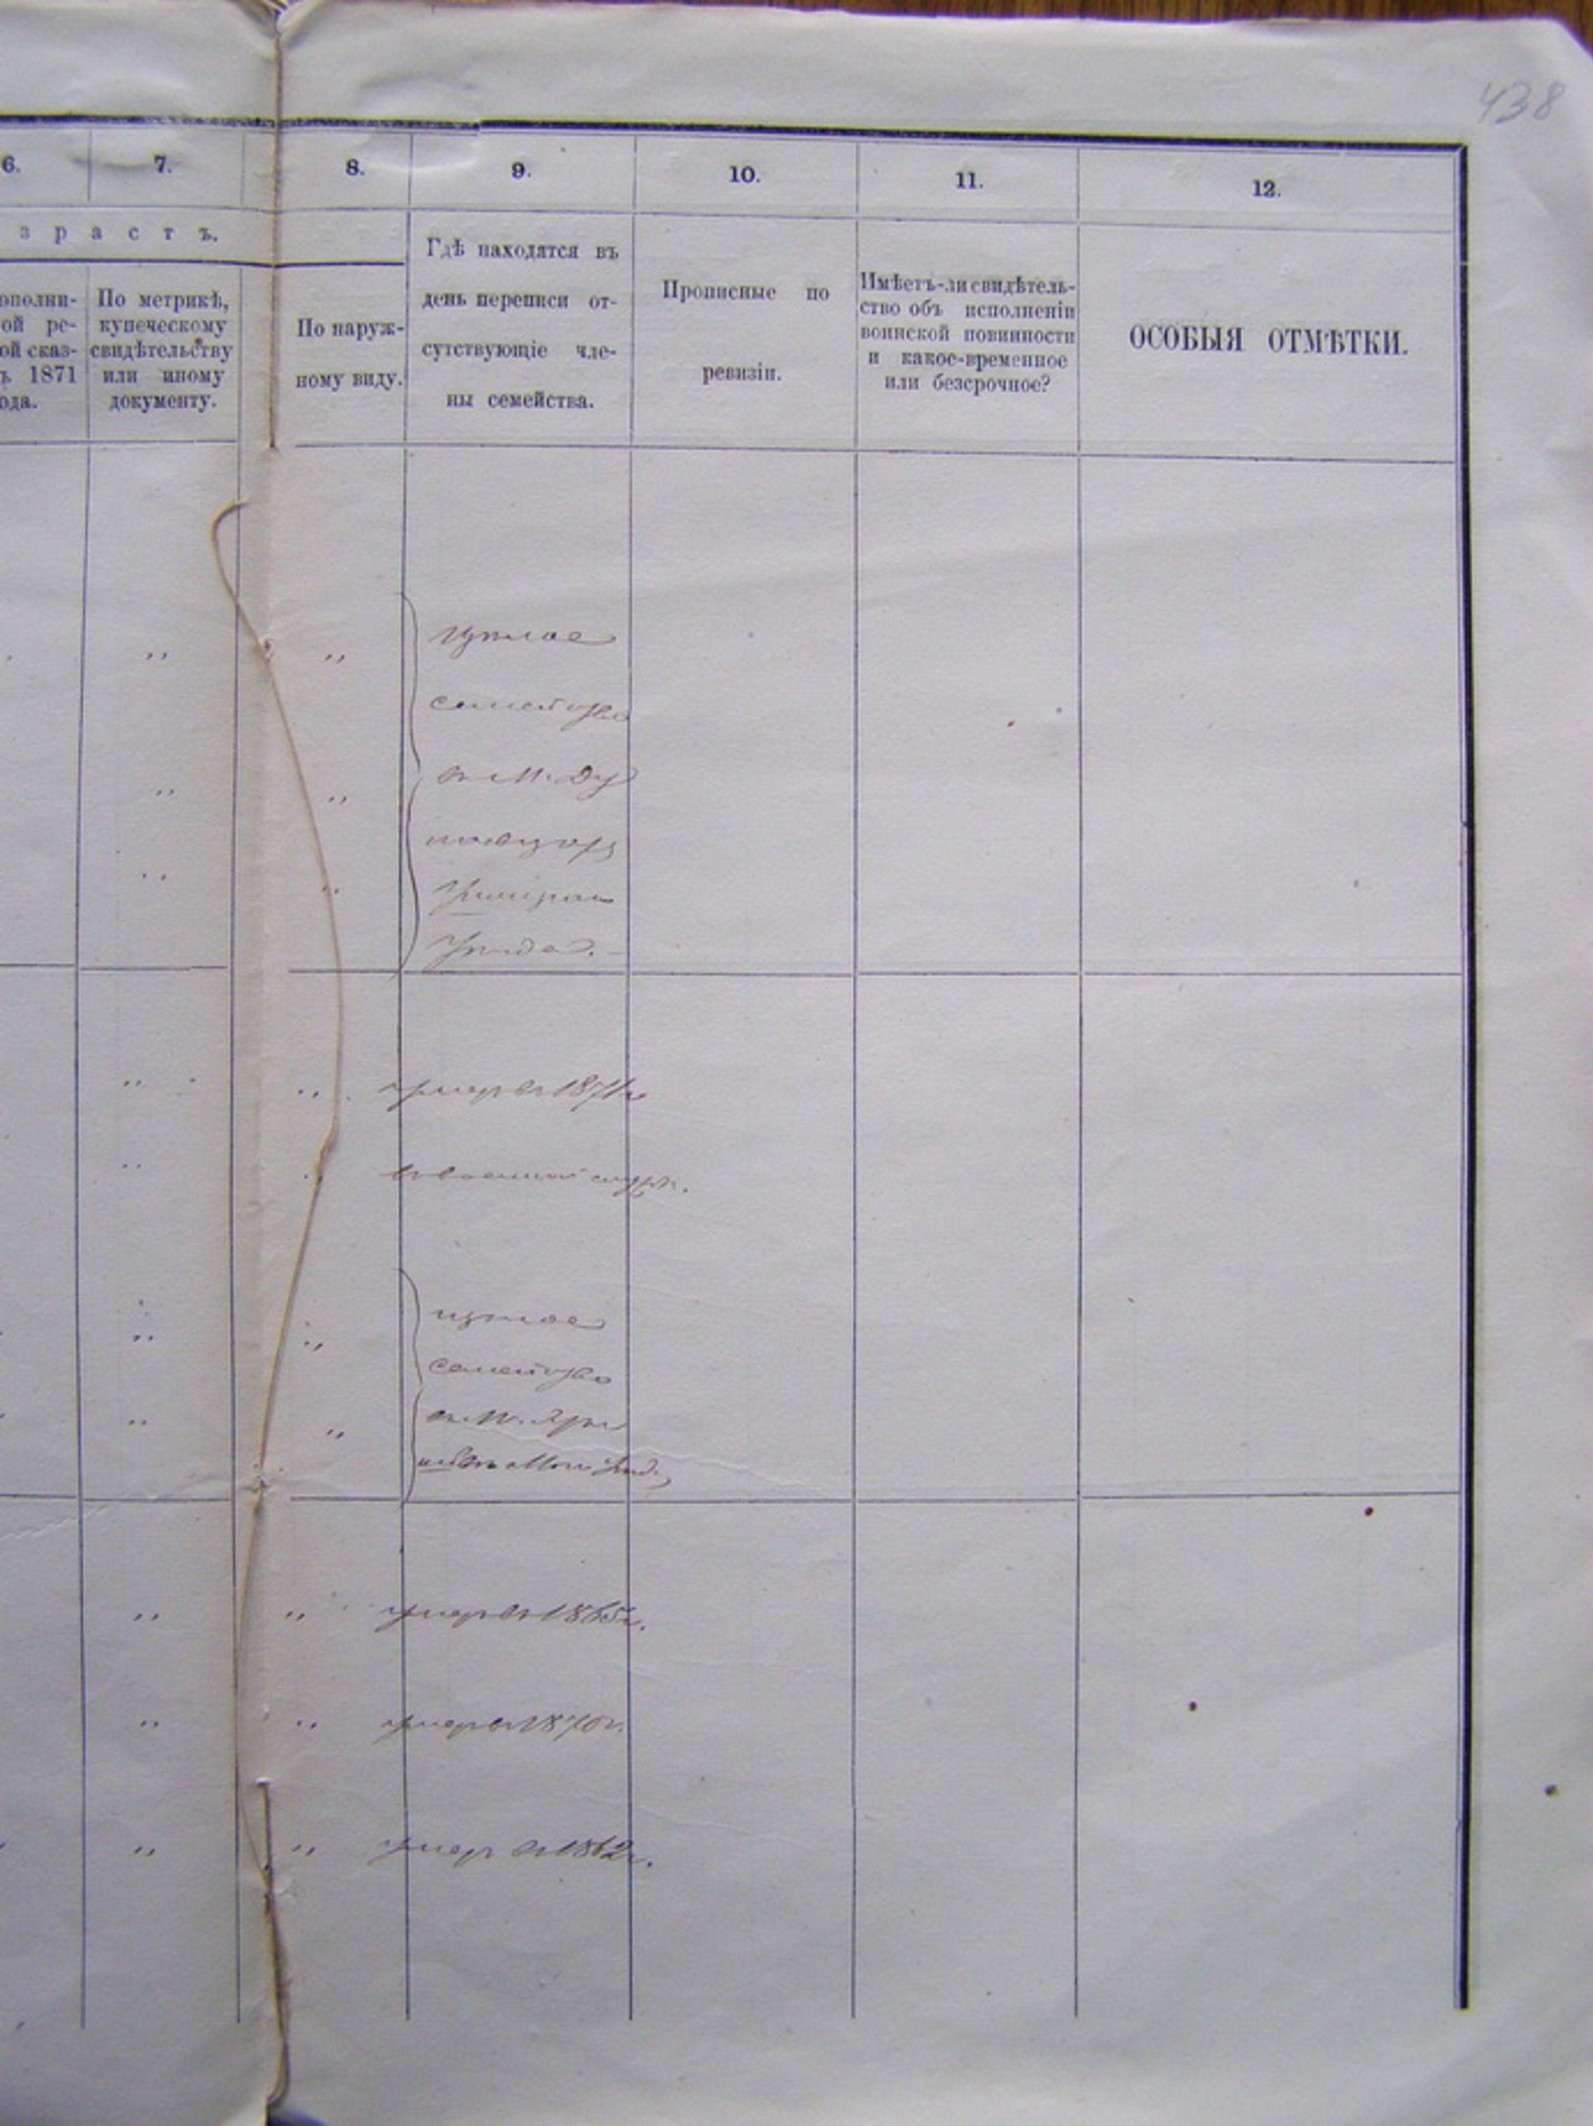 438
6.
7.
8.
9.
10.
11.
12.
з р а с т ъ.
ополни-
ой ре-
ой сказ-
ъ 1871
ода.
По метрикѣ,
купеческому
свидѣтельству
или иному
документу.
По наруж-
ному виду.
Гдѣ находятся въ
день переписи от-
сутствующіе чле-
ны семейства.
Прописные по
ревизіи.
Имѣетъ-ли свидѣтель-
ство объ исполненіи
воинской повинности
и какое-временное
или безсрочное?
ОСОБЫЯ ОТМѢТКИ.
„ „ цѣлое
семейство
„ „ въ М.
„ „
„ „ умеръ въ 1871 г.
„ въ военной служб.
„ „ цѣлое
семейство
„ „ въ М.
„ „ умеръ въ 1865 г.
„ „ умеръ въ 1870 г.
„ „ умеръ въ 1862 г.